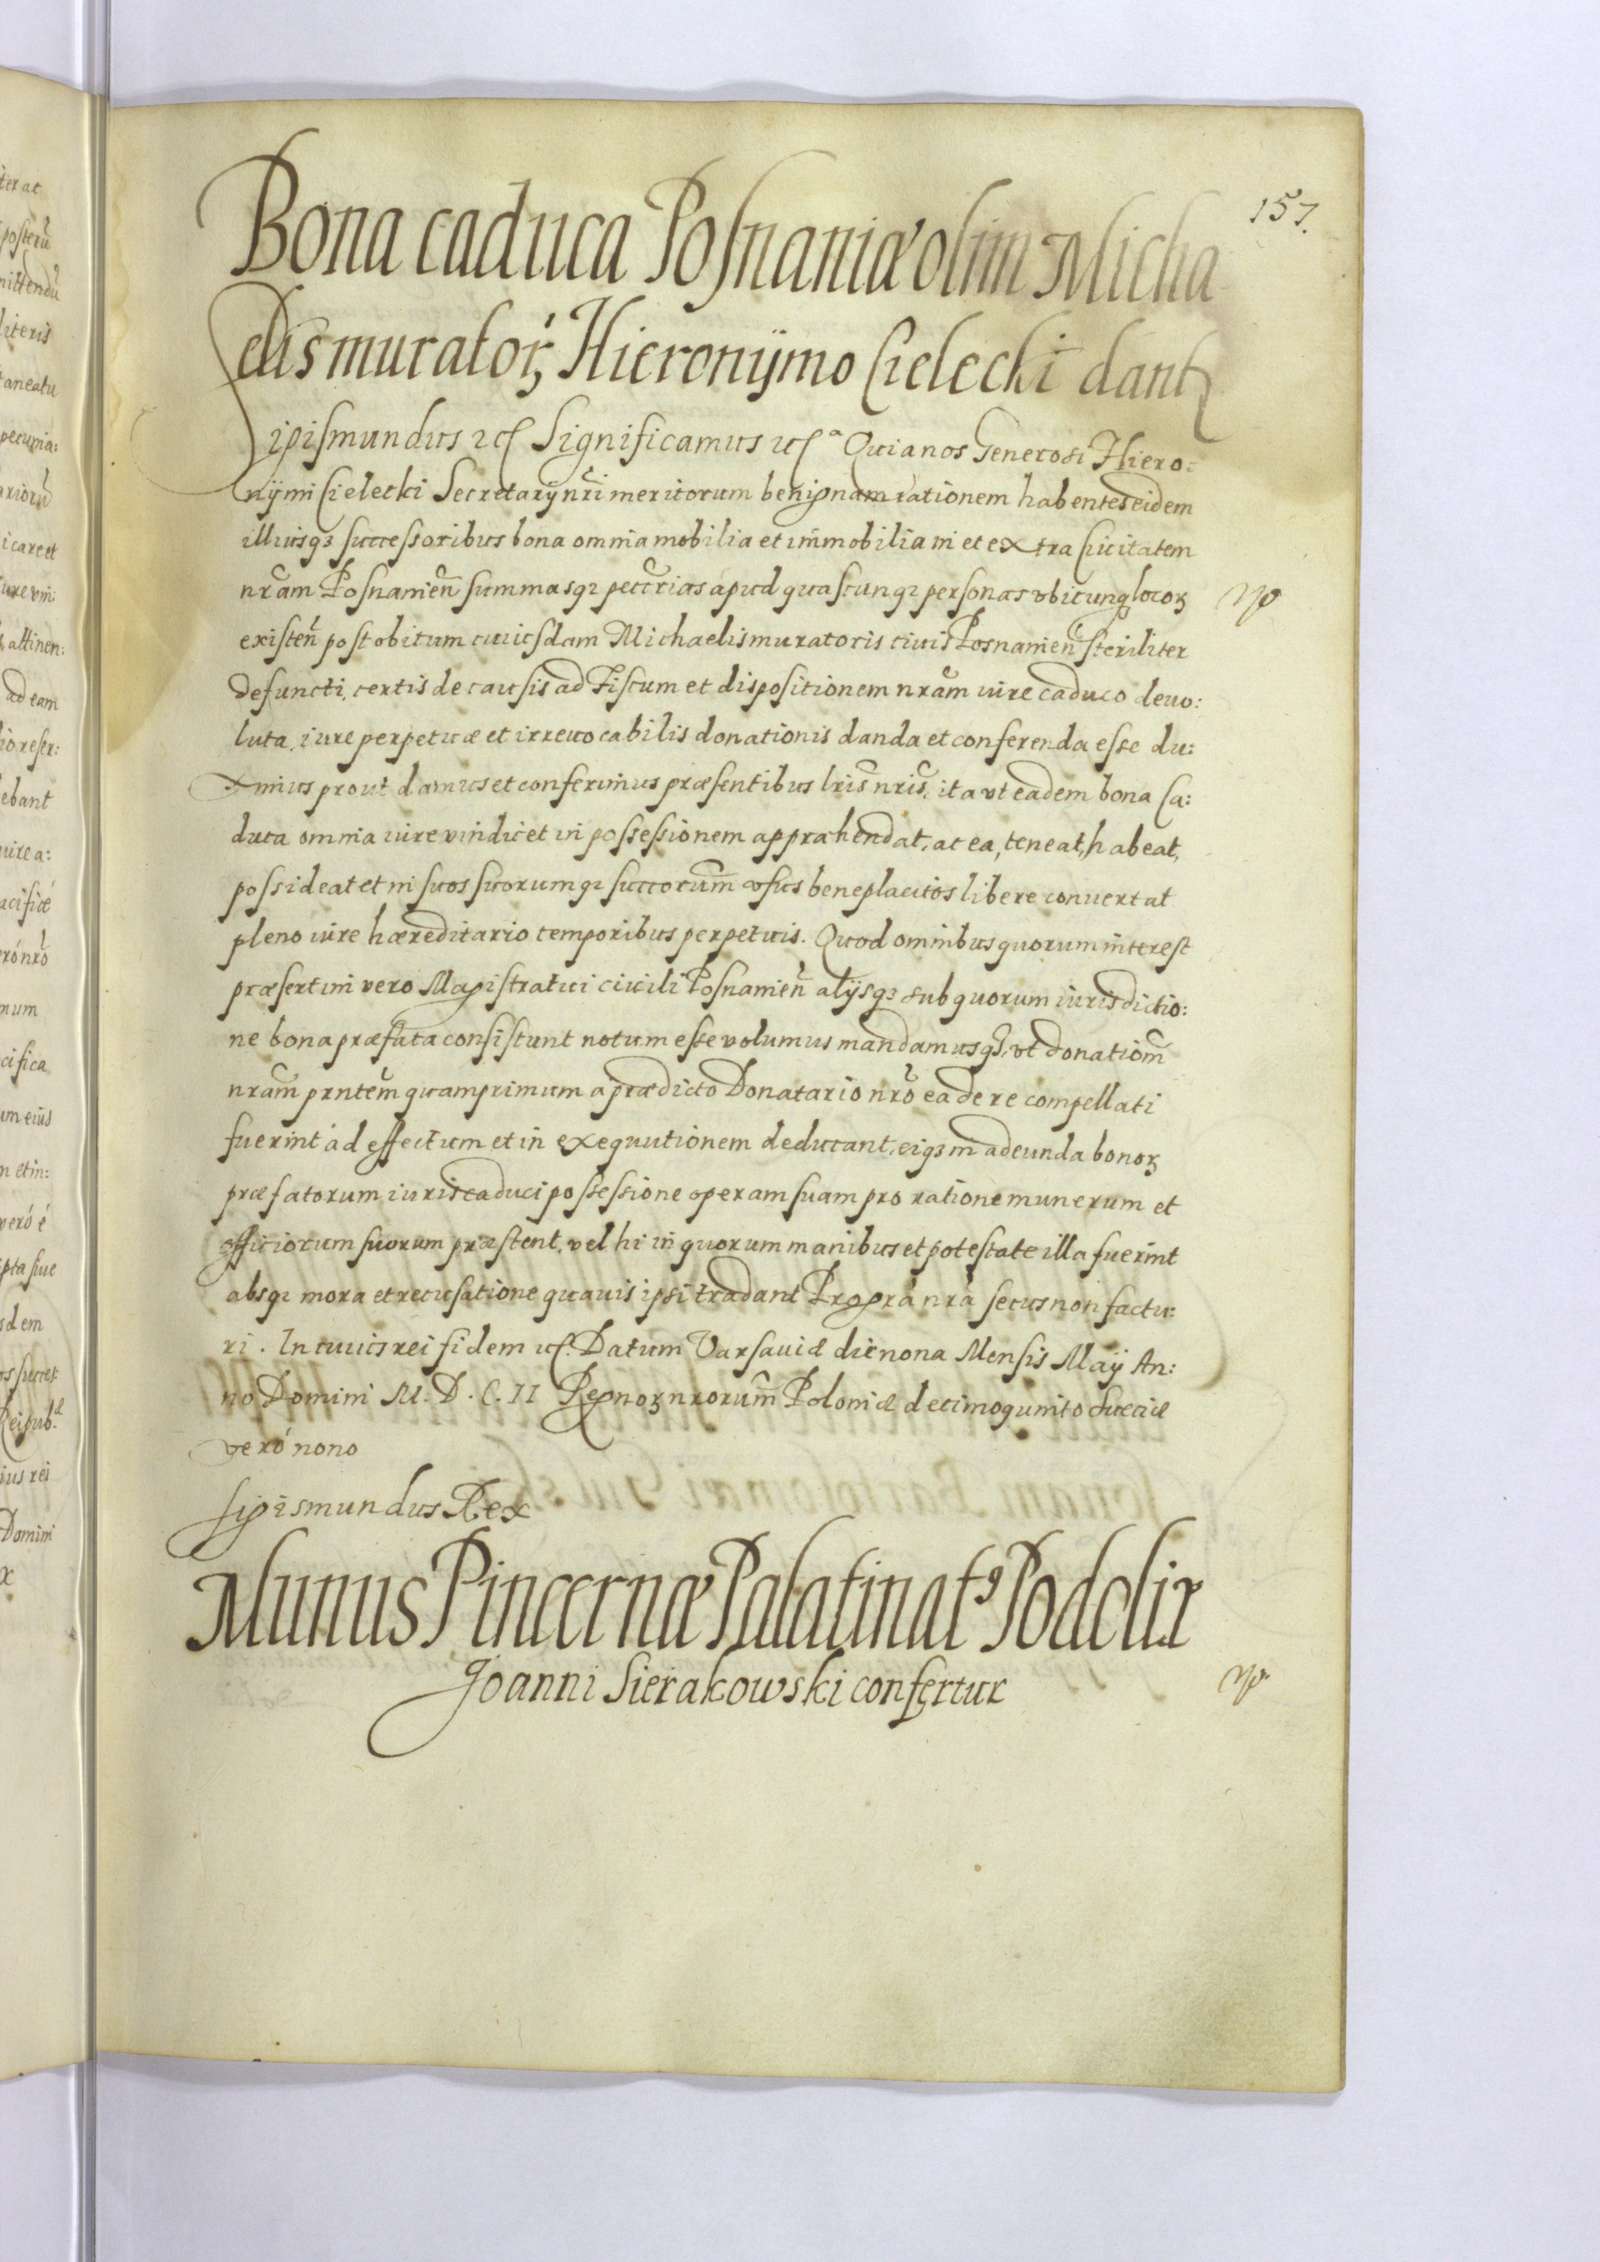 157.
Bona caduca Posnaniæ olim Micha
elis murator, Hieronÿmo Cielecki dant
Sigismundus etc Significamus etc Quia nos Generosi Hiero:
nÿmi Cielecki Secretarÿ nr̃i meritorum benignam rationem habentes eidem
illiusq3 successoribus bona omnia mobilia et im̃mobilia in et extra Civitatem
nr̃am Posnanieñ summasq3 pecc̃rias apud quascunq3 personas vbicunq locoꝝ
existeñ post obitum cuiusdam Michaelis muratoris civis Posnanieñ steriliter
defuncti, certis de causis ad Fiscum et dispositionem nr̃am iure caduco devo:
luta, iure perpetuæ et irrevocabilis donationis danda et conferenda esse du:
ximus prout damus et conferimus præsentibus lris̃ nris̃, ita vt eadem bona Ca:
duca omnia iure vindicet in possessionem appræhendat, ac ea, teneat, habeat,
possideat et in suos suorumq3 succorum̃ vsus beneplacitos libere convertat
pleno iure hæreditario temporibus perpetuis. Quod omnibus quorum interest
præsertim vero Magistratui civili Posnanieñ alÿsq3 sub quorum iurisdictio:
ne bona præfata consistunt notum esse volumus mandamusq3, vt donatiom̃
nram̃ prntem̃ quamprimum a prædicto Donatario nrõ ea de re compellati
fuerint ad effectum et in exequutionem deducant, eiq3 in adeunda bonoꝝ
præfatorum iuris caduci possessione operam suam pro ratione munerum et
officiorum suorum præstent, vel hi in quorum manibus et potestate illa fuerint
absq3 mora et recusatione quavis ipsi tradant Pro grã nrã secus non factu:
ri. In cuius rei fidem etc. Datum Varsaviæ die nona Mensis Maÿ An:
no Domini M.D.C.II Regnoꝝ nrorum̃ Poloniæ decimoquinto Sueciæ
veró nono
Sigismundus Rex
Munus Pincernæ Palatinat9 Podoliæ
Joanni Sierakowski confertur